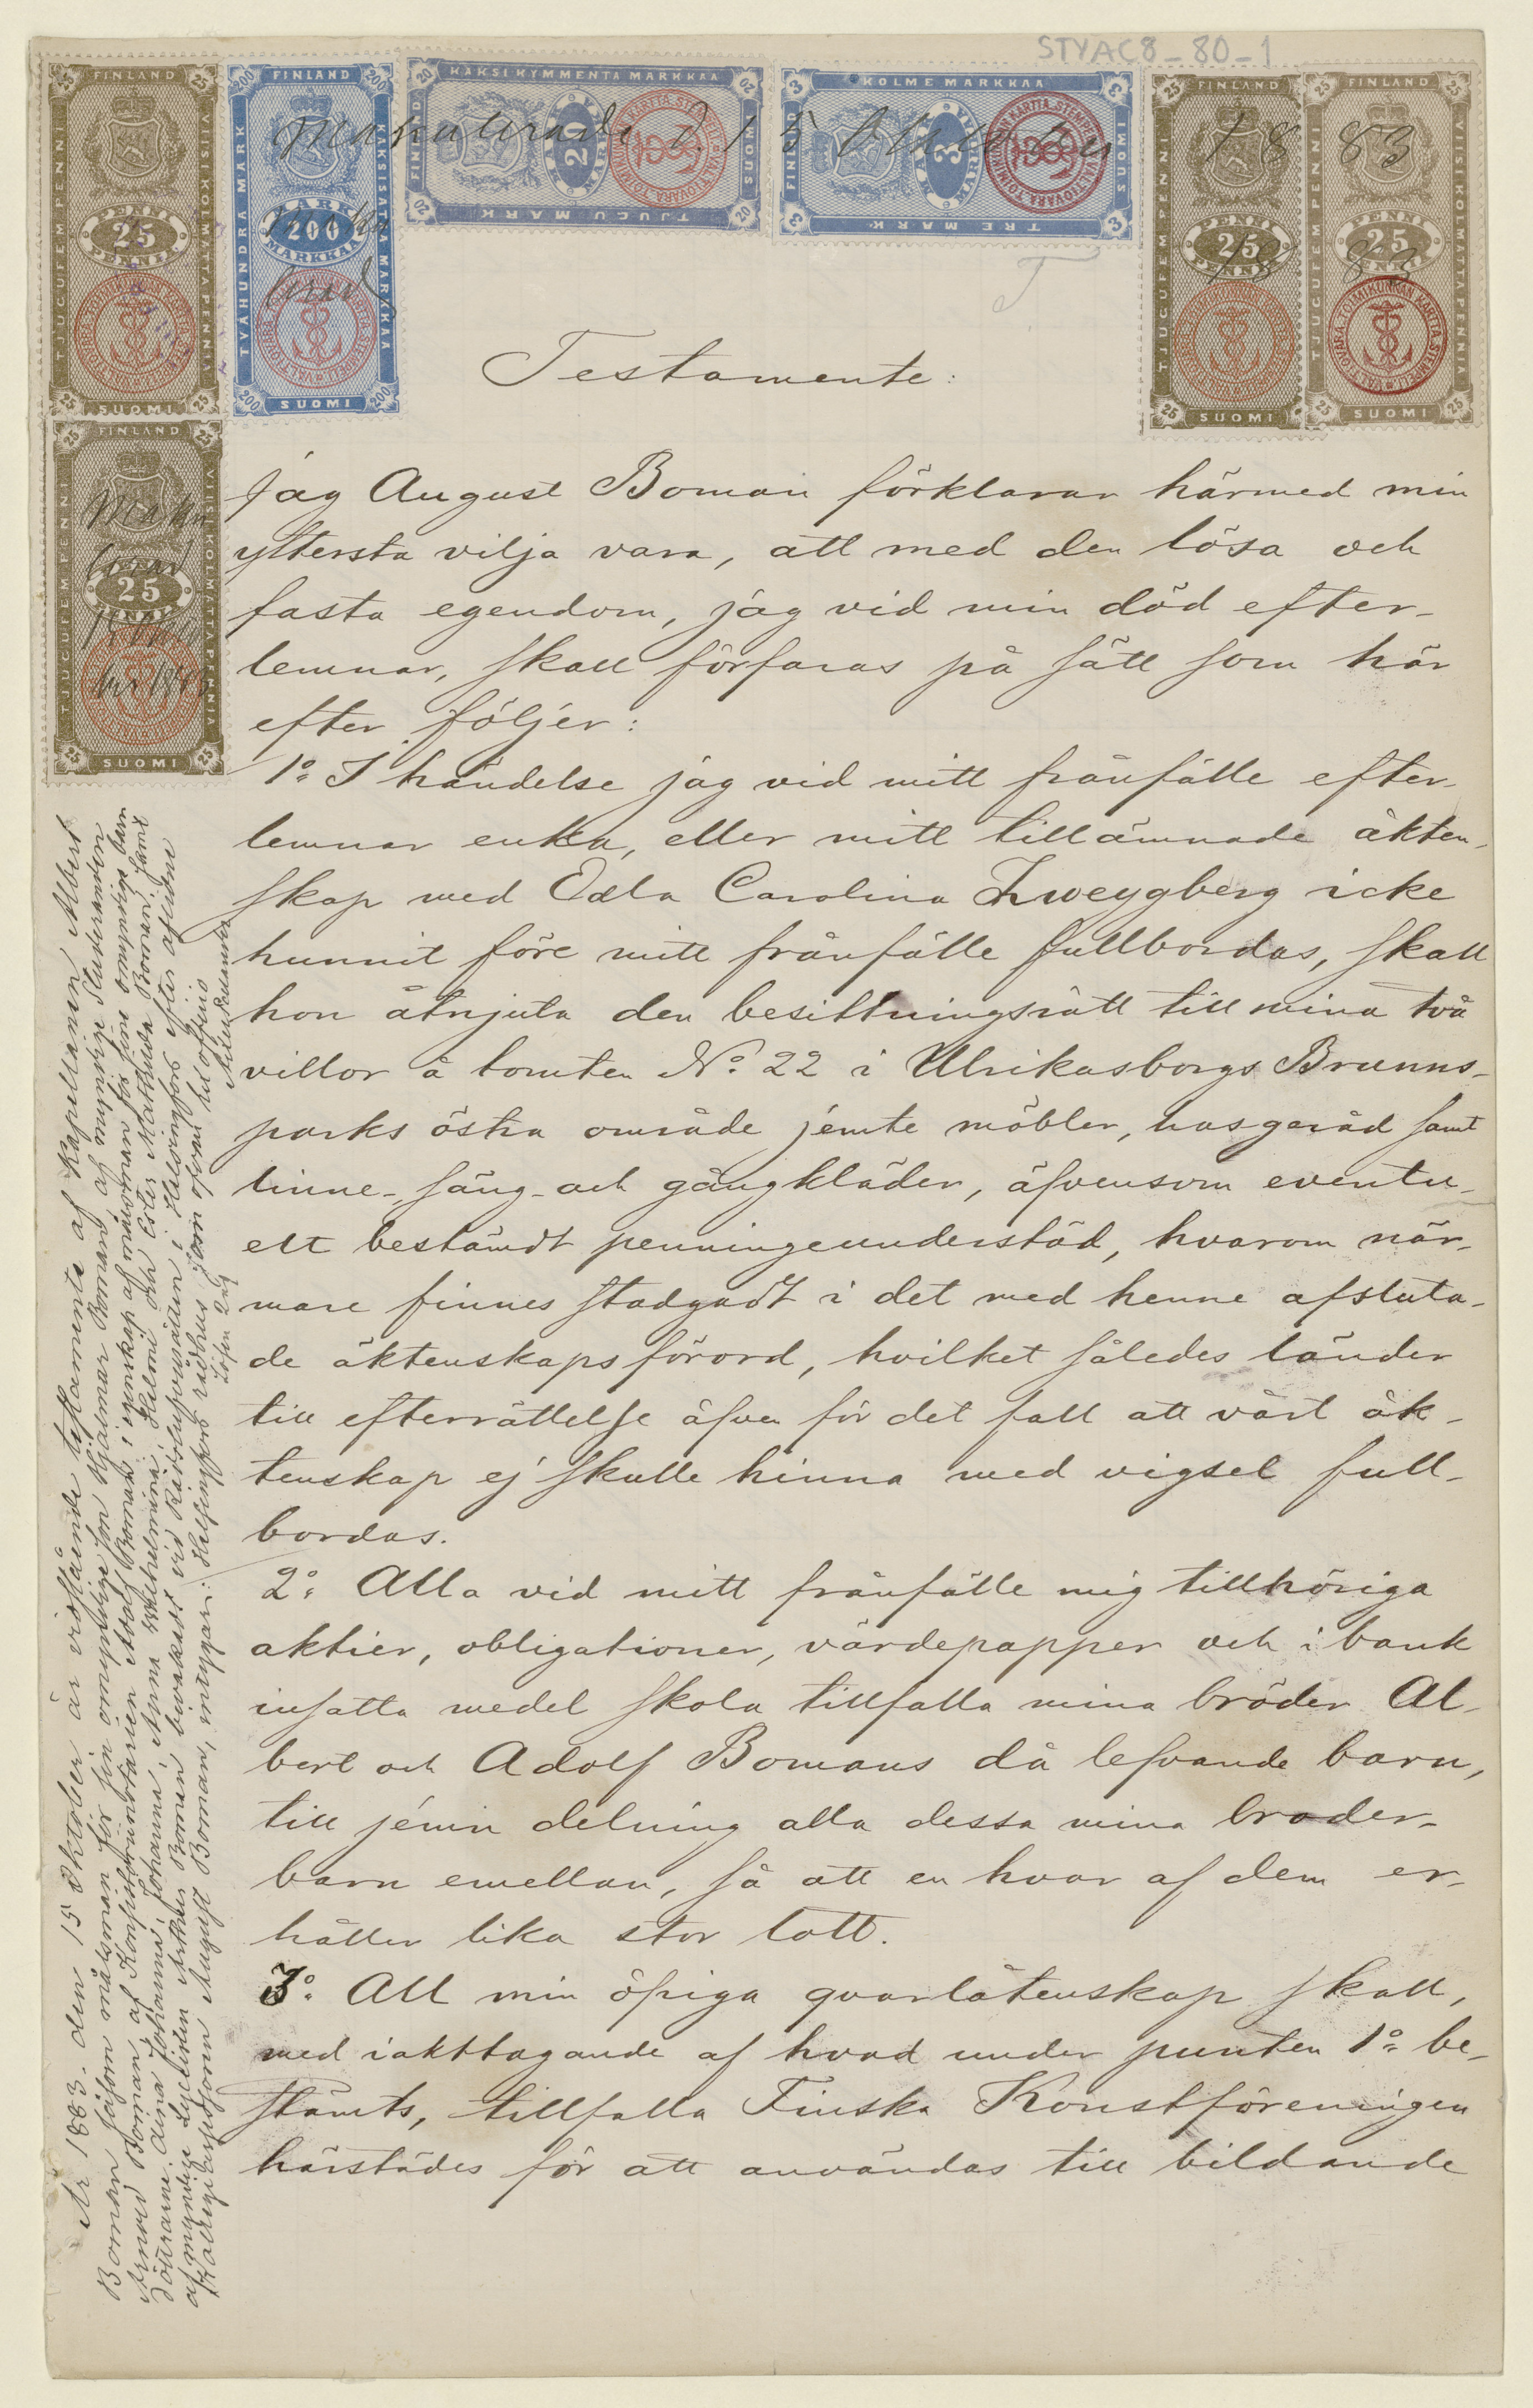 STYAC8_80_1
FINLAND
TJUGUFEM PENNI
VIISI KOLMATTA PENNIÄ
25
PENNI
25
PENNIÄ
SUOMI
FINLAND
200
TVÅHUNDRA MARK
KAKSISATAA MARKKAA
MARK
200
MARKKAA
SUOMI
KAKSI KYMMENTÄ MARKKAA
FINLAND
20
SUOMI
TJUGU MARK
KOLME MARKKAA
FINLAND
3
SUOMI
TRE MARK
FINLAND
TJUGUFEM PENNI
25
PENNI
25
PENNIÄ
SUOMI
FINLAND
TJUGUFEM PENNI
VIISI KOLMATTA PENNIÄ
25
PENNI
25
PENNIÄ
SUOMI
FINLAND
TJUGUFEM PENNI
VIISI KOLMATTA PENNIÄ
25
PENNIÄ
SUOMI
Makulerade d. 15 Oktober 18 83
Maku
lerad
18 83
Maku
lerad
Testamente:
Jag August Boman förklarar härmed min
yttersta vilja vara, att med den lösa och
fasta egendom, jag vid min död efter-
lemnar, skall förfaras på sätt som här
efter följer:
1º. I händelse jag vid mitt frånfälle efter-
lemnar enka, eller mitt tillämnade äkten-
skap med Edla Carolina Zweygberg icke
hunnit före mitt frånfälle fullbordas, skall
hon åtnjuta den besittningsrätt till mina två
villor å tomten Nº. 22 i Ulrikasborgs Brunns-
parks östra område jemte möbler, husgeråd samt
linne- säng- och gångkläder, äfvensom eventu-
elt bestämdt penningeunderstöd, hvarom när-
mare finnes stadgadt i det med henne afsluta-
de äktenskapsförord, hvilket således länder
till efterrättelse äfven för det fall att vårt äk-
tenskap ej skulle hinna med vigsel full-
bordas.
2º. Alla vid mitt frånfälle mig tillhöriga
aktier, obligationer, värdepapper och i bank
insatta medel skola tillfalla mina bröder Al-
bert och Adolf Bomans då lefvande barn,
till jemn delning alla dessa mina broder-
barn emellan, så att en hvar af dem er-
håller lika stor lott.
3º. All min öfriga qvarlåtenskap skall,
med iakttagande af hvad under punten 1º. be-
stämts, tillfalla Finska Konstföreningen
härstädes för att användas till bildande
År 1883. den 15 Oktober är vidstående testamente af Kapellanen Albert
Boman såsom målsman för sin omyndige son Hjalmar Boman, af myndige Studeranden
Arvid Boman, af Konsistorinotarien Adolf Boman i egenskap af målsman för sina omyndiga barn
döttrarne Aina Johanna, Johanna, Anna Wilhelmina, Helmi och Ester Mathilda Boman, samt
af myndige Lyceisten Arthur Boman bevakadt vid Rådstufvurätten i Helsingfors efter aflidne
Kollegiiassessorn August Boman, intygar: Helsingfors rådhus som ofvan. ex officio